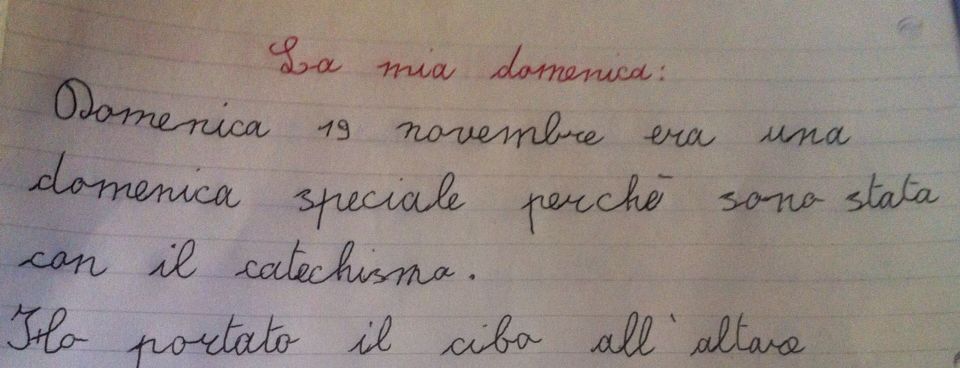 La mia domenica:
Domenica 19 novembre era una
domenica speciale perchē sono stata
con il catechismo.
Ho portato il cibo all'altare